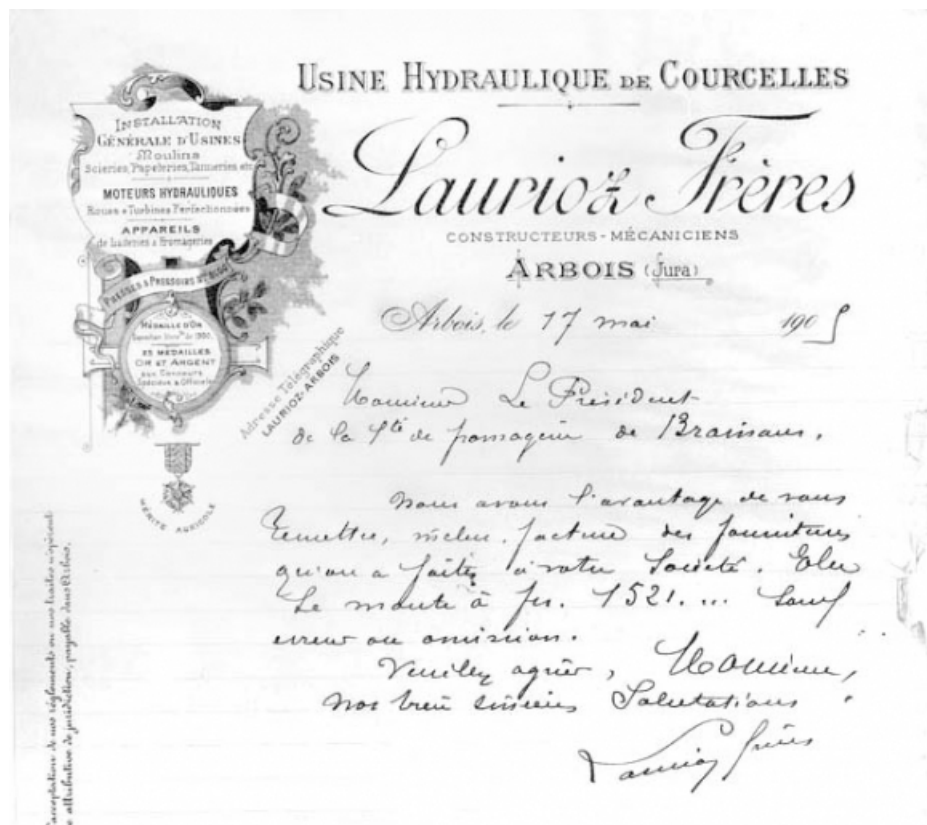 USINE HYDRAULIQUE DE COURCELLES
Laurioz Frères
CONSTRUCTEURS-MÉCANICIENS
ARBOIS (Jura)
INSTALLATION
GÉNÉRALE D'USINES
Moulins
Scieries, Papeteries, Tanneries etc
MOTEURS HYDRAULIQUES
Roues & Turbines Perfectionnées
APPAREILS
de Laiteries & Fromageries
PRESSES & PRESSOIRS
MÉDAILLE D'OR
de 1900
25 MÉDAILLES
OR ET ARGENT
aux Concours
Spéciaux & Officiels
MÉRITE AGRICOLE
Adresse Télégraphique
LAURIOZ-ARBOIS
Arbois, le 17 mai 1905
Monsieur Le Président
de la Sté de fromagerie de Brainans.
Nous avons l'avantage de vous
remettre, inclus, facture des fournitures
qu'on a faites à votre Société. Elle
se monte à frs. 1521. ... Sauf
erreur ou omission.
Veuillez agréer, Monsieur,
nos bien sincères Salutations.
Laurioz frères
l'acceptation de nos règlements ou nos traites n'opérent
attributive de juridiction, payable dans Arbois.